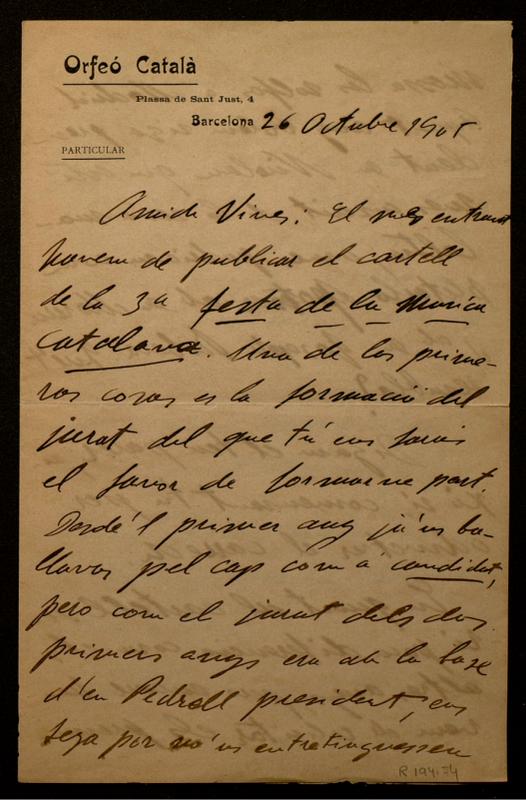 Orfeó Català
Plassa de Sant Just, 4
Barcelona 26 Octubre 1905
PARTICULAR
Amich Vives: El mes entrant
havem de publicar el cartell
de la 3ª festa de la Musica
Catalana. Una de las prime-
ras cosas es la formació del
jurat del que tú ens farás
el favor de formarne part.
Desde'l primer any ja'ns ba-
llavas pel cap com á candidat,
pero com el jurat dels dos
primers anys era ab la base
d'en Pedrell president, ens
feya por no'us entretinguessem
R 194.54